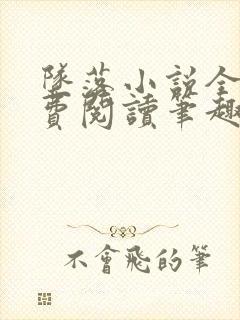 墜落小說全
費閱讀筆趣
不會飛的筆